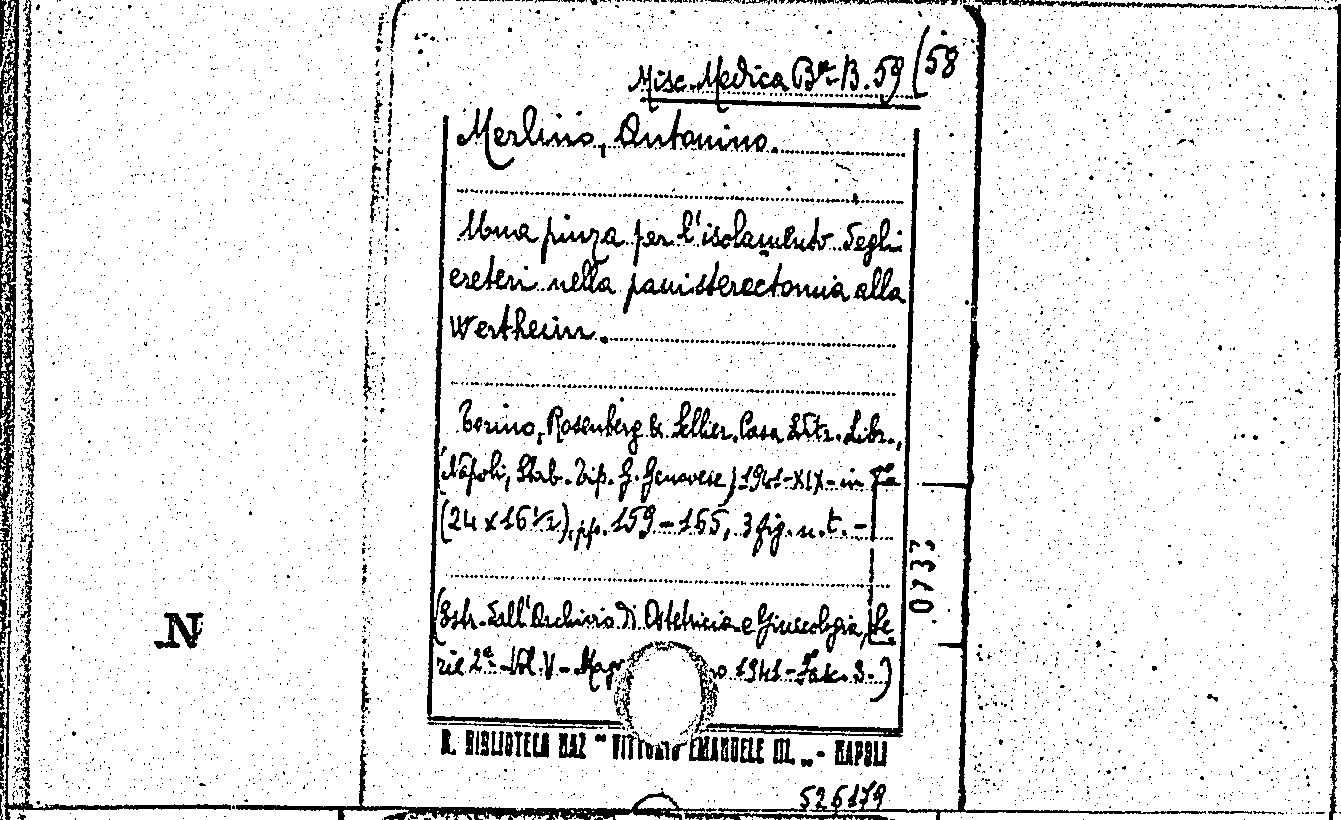 Misc. Medica Bª-B. 59 (58
Merlino, Antonino.
Una pinza per l'isolamento degli
ereteri nella panisterectomia alla
Wertheim.
Torino, Rosenberg & Sellier, Casa Editr. Libr.,
(Napoli, Stab. Tip. G. Genovese) 1941-XIX- in
(24 x 16½), pp. 159-165, 3 fig. n. t. -
(Estr. dall'Archivio di Ostetricia e Ginecologia, Se
rie 2ª- Vol. V - 1941 - Fasc. 3.)
0733
N
R. BIBLIOTECA NAZ "VITTORIO EMANUELE III. „ - NAPOLI
526179